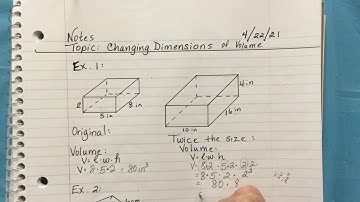 Notes
4/22/21
Topic: Changing Dimensions of Volume
Ex. 1:
2
5 in
8 in
4 in
16 in
10 in
Original:
Volume:
V = l · w · h
V = 8 · 5 · 2 = 80 in³
Twice the size:
Volume:
V = l · w · h
V = 8·2 · 5·2 · 2·2
= 8 · 5 · 2 · 2³
= 80 · 8
Ex. 2: